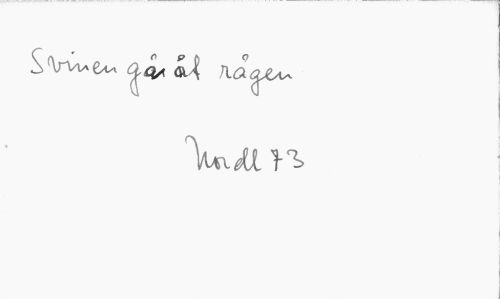 Svinen gå åt rågen
Nordl 73